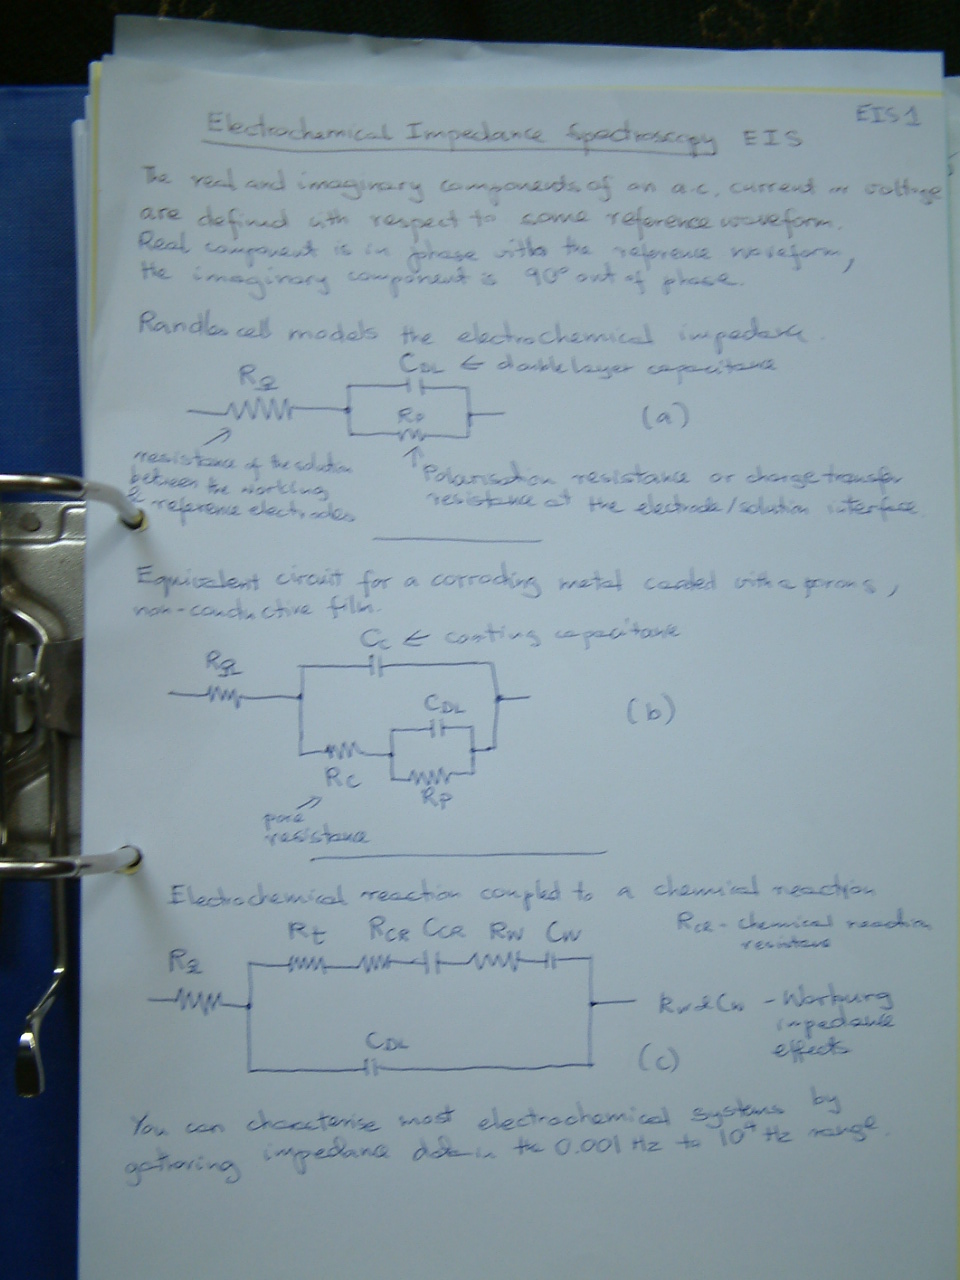 EIS 1
Electrochemical Impedance Spectroscopy EIS
The real and imaginary components of an a.c. current or voltage
are defined with respect to some reference waveform.
Real component is in phase with the reference waveform,
the imaginary component is 90° out of phase.
Randles cell models the electrochemical impedance.
C_DL ← double layer capacitance
R_Ω
R_P
(a)
resistance of the solution
between the working
& reference electrodes
Polarisation resistance or charge transfer
resistance at the electrode/solution interface.
Equivalent circuit for a corroding metal coated with a porous,
non-conductive film.
C_C ← coating capacitance
R_Ω
C_DL
(b)
R_C
R_P
pore
resistance
Electrochemical reaction coupled to a chemical reaction
R_t R_CR C_CR R_W C_W
R_CR - chemical reaction
resistance
R_Ω
R_W & C_W - Warburg
impedance
effects
C_DL
(c)
You can characterise most electrochemical systems by
gathering impedance data in the 0.001 Hz to 10⁴ Hz range.